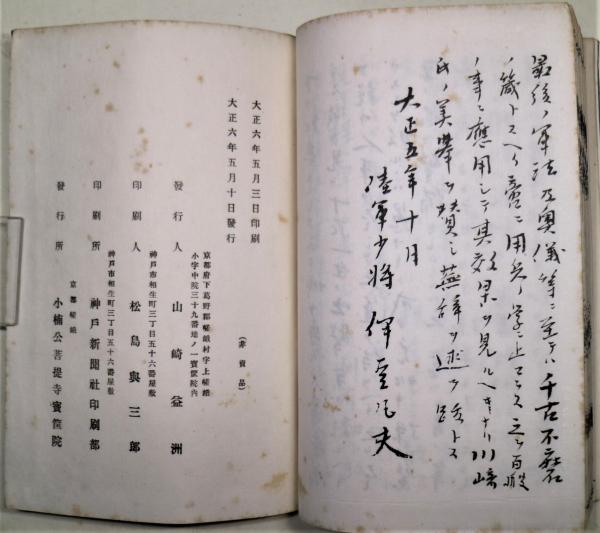 最後ノ軍法及奥儀等ニ至テハ千古不磨
ノ箴トスヘク啻ニ用兵ノ学ニ止マラス之ヲ百般
ノ事ニ應用シテ其效果ヲ見ルヘキナリ川崎
氏ノ美擧ヲ賛シ蕪辞ヲ述ヘテ跋トス
大正五年十月
陸軍少将
大正六年五月三日印刷
大正六年五月十日發行
(非賣品)
京都府下葛野郡嵯峨村字上嵯峨
小字中院三十九番地ノ一寶筐院內
發行人 山崎益洲
神戶市相生町三丁目五十六番屋敷
印刷人 松島與三郎
神戶市相生町三丁目五十六番屋敷
印刷所 神戶新聞社印刷部
京都嵯峨
發行所 小楠公菩提寺寶筐院